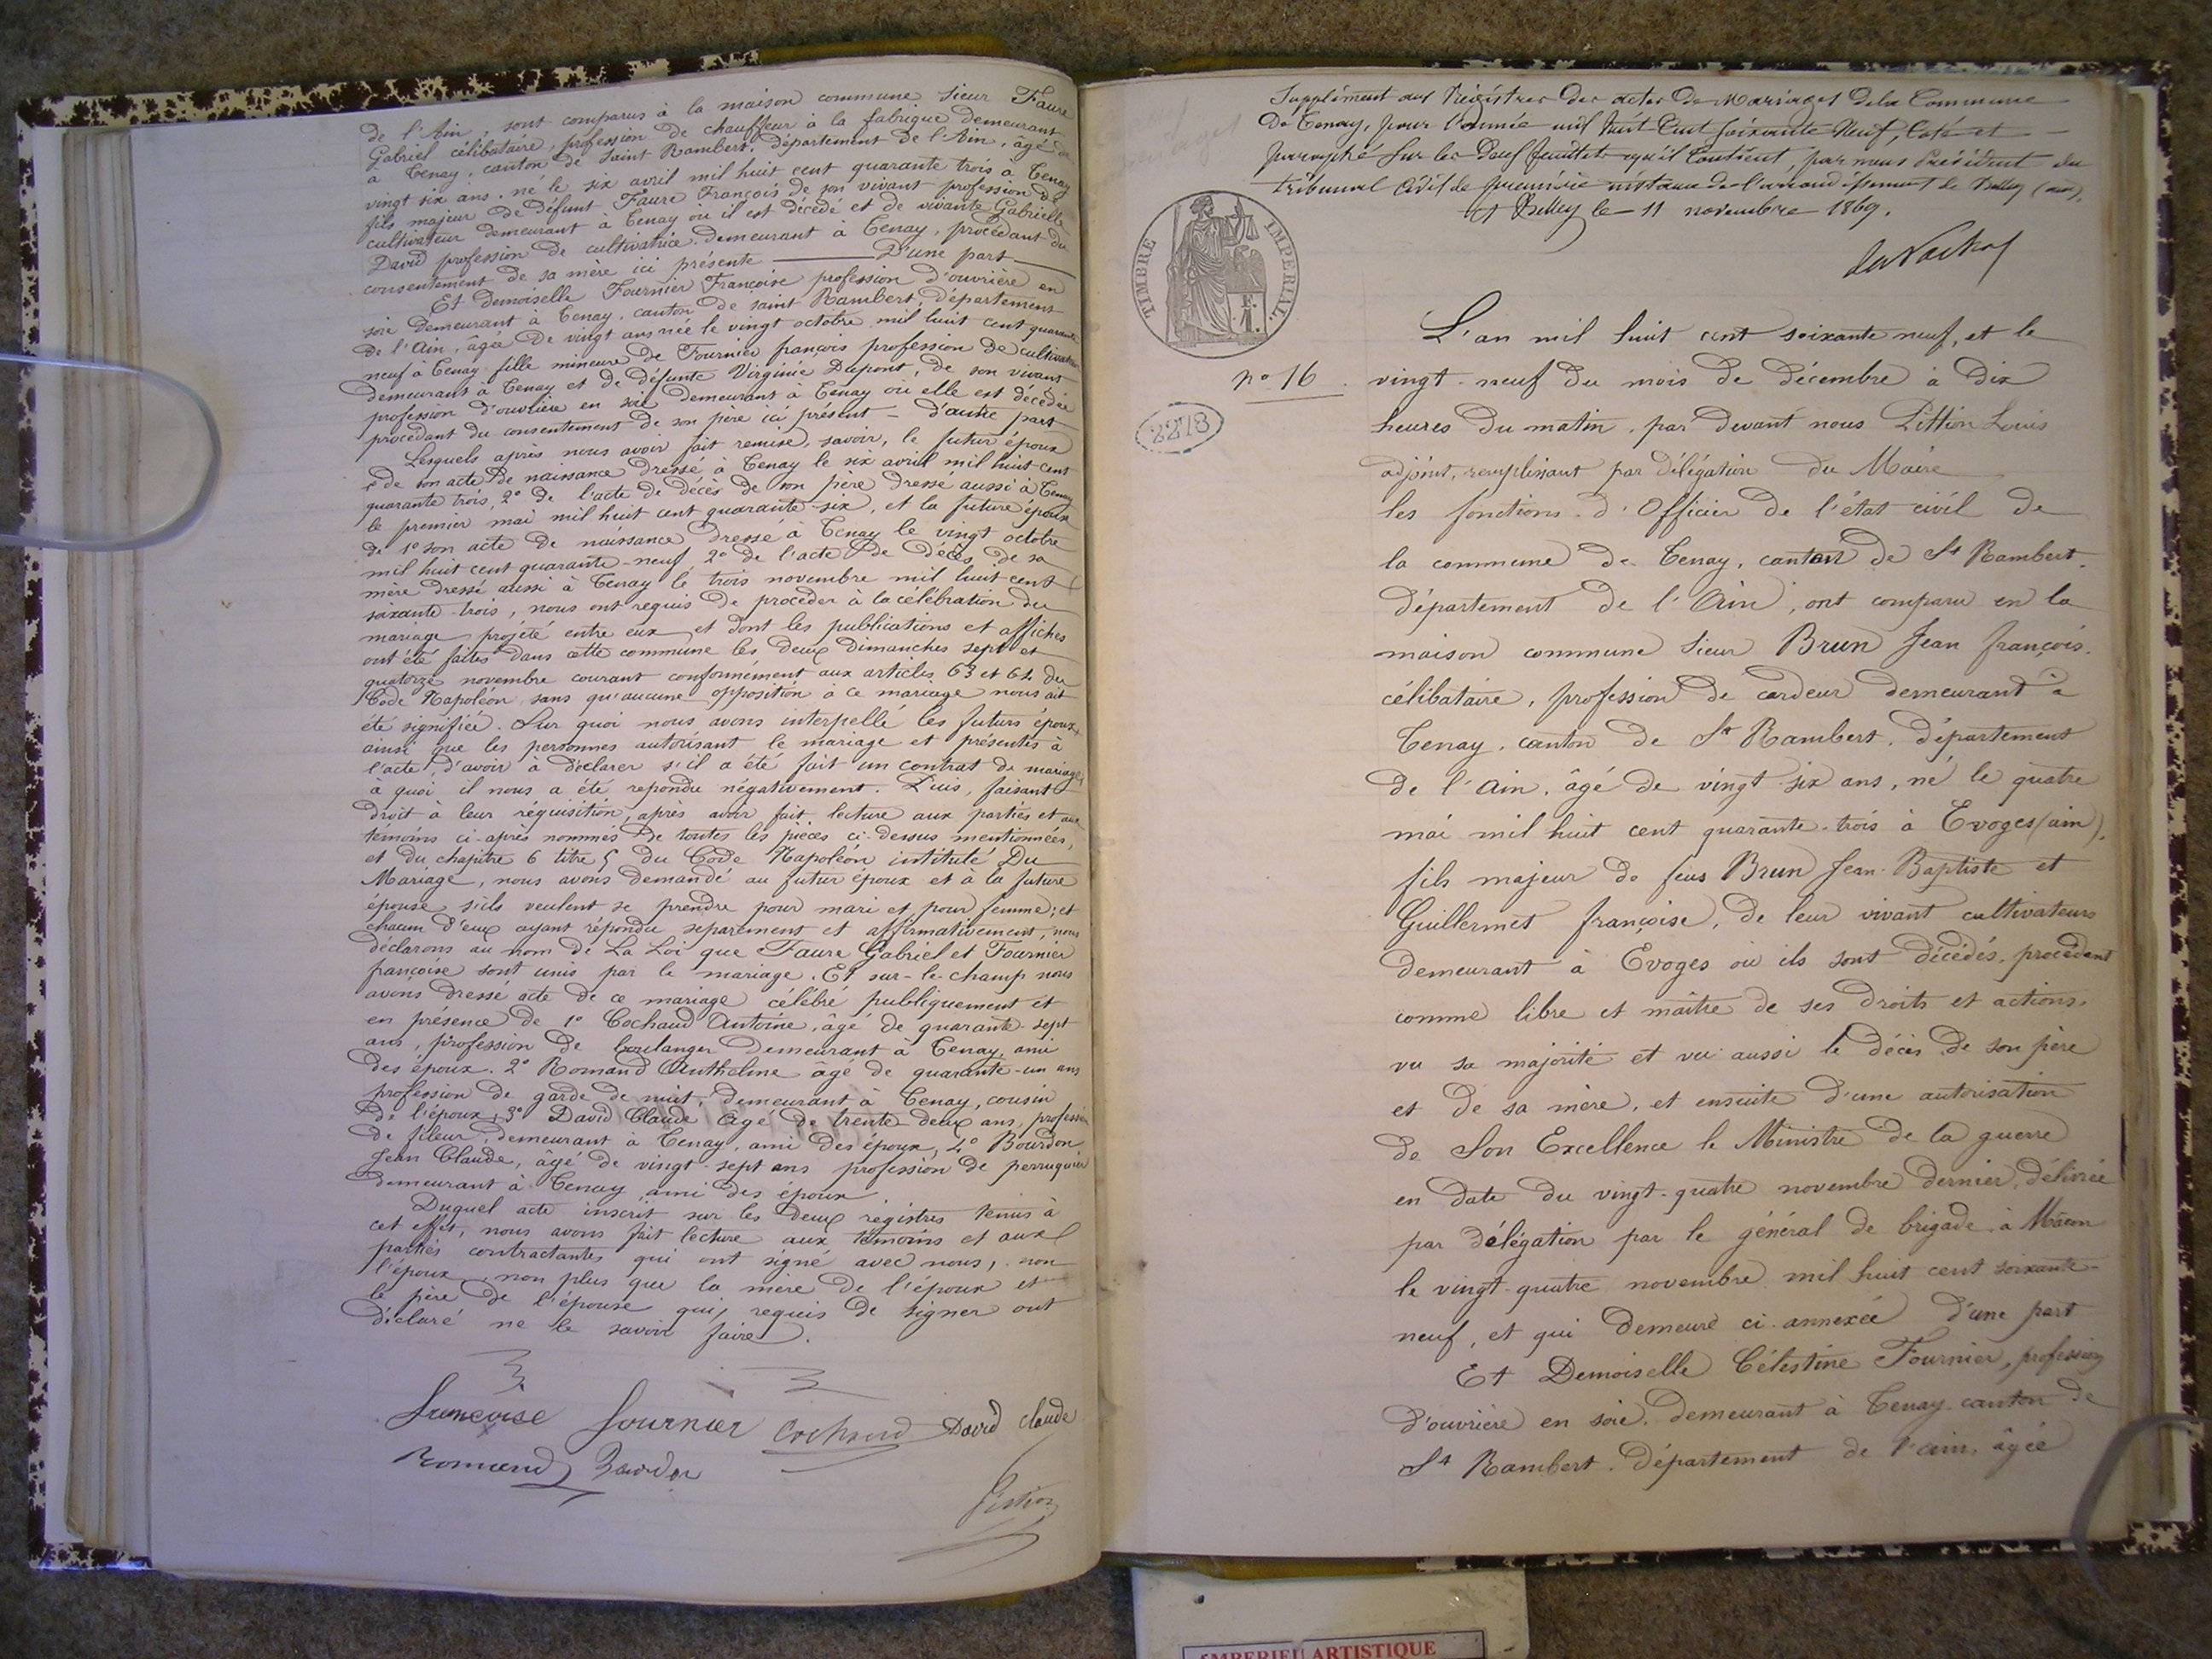 de l'Ain, sont comparus à la maison commune sieur Faure
Gabriel célibataire, profession de chauffeur à la fabrique demeurant
à Tenay, canton de Saint Rambert. Département de l'Ain, agé de
vingt six ans, né le six avril mil huit cent quarante trois à Tenay
fils majeur de défunt Faure François de son vivant profession de
cultivateur demeurant à Tenay ou il est décédé et de vivante Gabrielle
David profession de cultivatrice demeurant à Tenay, procédant du
consentement de sa mère ici présente D'une part
Et demoiselle Fournier Françoise profession d'ouvrière en
soie demeurant à Tenay, canton de saint Rambert, département
de l'Ain, âgée de vingt ans née le vingt octobre mil huit cent quarante
neuf à Tenay fille mineure de Fournier françois profession de cultivateur
demeurant à Tenay et de défunte Virginie Dupont, de son vivant
profession d'ouvrière en soie demeurant à Tenay où elle est décédée
procédant du consentement de son père ici présent - d'autre part
Lesquels après nous avoir fait remise, savoir, le futur époux
de son acte de naissance dressé à Tenay le six avril mil huit cent
quarante trois, 2° de l'acte de décès de son père dressé aussi à Tenay
le premier mai mil huit cent quarante-six, et la future épouse
de 1° son acte de naissance dressé à Tenay le vingt octobre
mil huit cent quarante-neuf 2° de l'acte de décès de sa
mère dressé aussi à Tenay le trois novembre mil huit cent
soixante-trois, nous ont requis de procéder à la célébration du
mariage projeté entre eux et dont les publications et affiches
ont été faites dans cette commune les deux dimanches sept et
quatorze novembre courant conformément aux articles 63 et 64 du
Code Napoléon sans qu'aucune opposition à ce mariage nous ait
été signifiée. Sur quoi nous avons interpellé les futurs époux
ainsi que les personnes autorisant le mariage et présentes à
l'acte, d'avoir à déclarer s'il a été fait un contrat de mariage,
à quoi il nous a été repondu négativement. Puis, faisant
droit à leur réquisition, après avoir fait lecture aux parties et aux
témoins ci-après nommés de toutes les pièces ci-dessus mentionnées,
et du chapitre 6 titre 5 du Code Napoléon intitulé Du
Mariage, nous avons demandé au futur époux et à la future
épouse s'ils veulent se prendre pour mari et pour femme; et
chacun d'eux ayant répondu separément et affirmativement, nous
déclarons au nom de La Loi que Faure Gabriel et Fournier
françoise sont unis par le mariage. Et sur-le-champ nous
avons dressé acte de ce mariage célébré publiquement et
en présence de 1° Cochaud Antoine, âgé de quarante-sept
ans, profession de boulanger demeurant à Tenay, ami
des époux. 2° Romand Anthelme agé de quarante-un ans
profession de garde de nuit, demeurant à Tenay, cousin
de l'époux, 3° David Claude agé de trente deux ans, profession
de fileur, demeurant à Tenay, ami des époux, 4° Bourdon
Jean Claude, âgé de vingt-sept ans profession de perruquier
demeurant à Tenay ami des époux
Duquel acte inscrit sur les deux registres tenus à
cet effet, nous avons fait lecture aux témoins et aux
parties contractantes qui ont signé avec nous, non
l'époux, non plus que la mère de l'époux et
le père de l'épouse qui, requis de signer ont
déclaré ne le savoir faire.
francoise fournier Cochaud David Claude
Romand Bourdon
Pittion
Supplément aux Registres des actes de Mariages de la Commune
De Tenay, pour l'année mil huit Cent soixante Neuf, Coté et
paraphé sur les Deux feuillets qu'il Contient, par nous Président du
tribunal Civil de première instance de l'arrondissement de Belley (ain).
A Belley le 11 novembre 1869.
TIMBRE IMPERIAL.
F. A.
n° 16
2278
L'an mil huit cent soixante neuf, et le
vingt-neuf du mois de décembre à dix
heures du matin, par devant nous Pittion Louis
adjoint, remplissant par délégation du Maire
les fonctions d'Officier de l'état civil de
la commune de Tenay, canton de St Rambert,
département de l'Ain, ont comparu en la
maison commune sieur Brun Jean françois.
célibataire, profession de cardeur demeurant à
Tenay, canton de St Rambert, département
de l'Ain, âgé de vingt-six ans, né le quatre
mai mil huit cent quarante-trois à Evoges (ain),
fils majeur de feus Brun Jean-Baptiste et
Guillermet françoise, de leur vivant cultivateurs
demeurant à Evoges où ils sont décédés, procédant
comme libre et maître de ses droits et actions,
vu sa majorité et vu aussi le décès de son père
et de sa mère, et ensuite d'une autorisation
de Son Excellence le Ministre de la guerre
en date du vingt-quatre novembre dernier, délivrée
par délégation par le général de brigade à Mâcon
le vingt-quatre novembre mil huit cent soixante-
neuf, et qui demeure ci-annexée d'une part
Et Demoiselle Célestine Fournier, profession
d'ouvrière en soie, demeurant à Tenay canton de
St Rambert, département de l'ain, âgée
AMBERIEU ARTISTIQUE